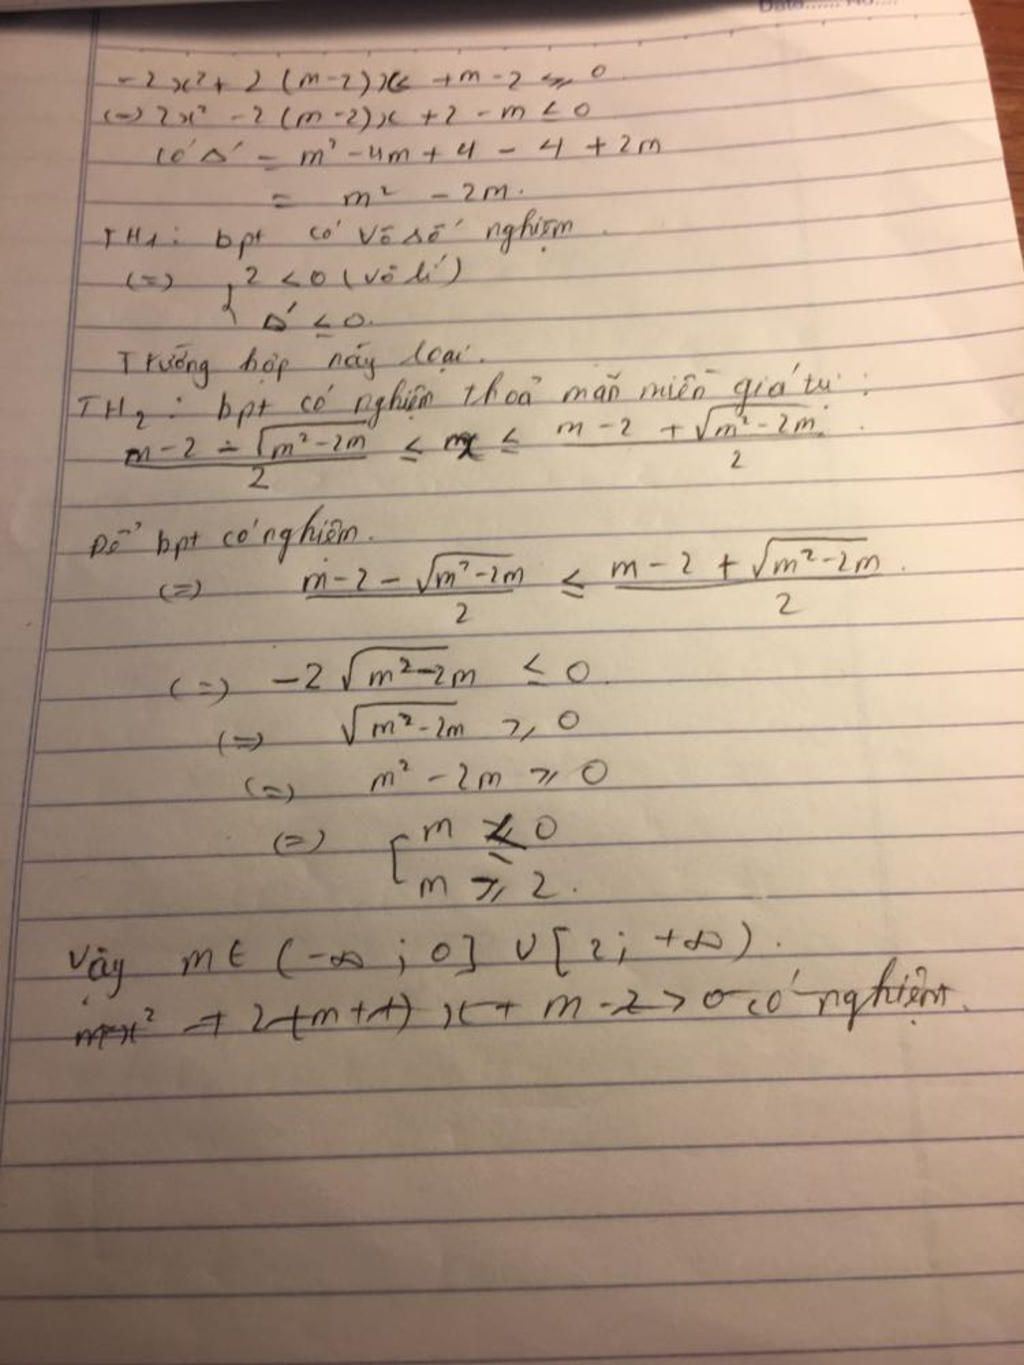 Date...... No....
-2x² + 2(m-2)x + m-2 ≥ 0
(=) 2x² - 2(m-2)x + 2 - m < 0
Có Δ' = m² - 4m + 4 - 4 + 2m
= m² - 2m.
TH1: bpt có vô số nghiệm.
(=) { 2 < 0 (vô lí)
Δ' ≤ 0.
Trường hợp này loại.
TH2: bpt có nghiệm thoả mãn miền giá trị:
(m-2-√(m²-2m))/2 ≤ x ≤ (m-2+√(m²-2m))/2.
Để bpt có nghiệm.
(=) (m-2-√(m²-2m))/2 ≤ (m-2+√(m²-2m))/2.
(=) -2√(m²-2m) ≤ 0
(=) √(m²-2m) ≥ 0
(=) m² - 2m ≥ 0
(=) [ m ≤ 0
m ≥ 2.
Vậy m ∈ (-∞; 0] ∪ [2; +∞).
mx² + 2(m+1)x + m-2 > 0 có nghiệm.